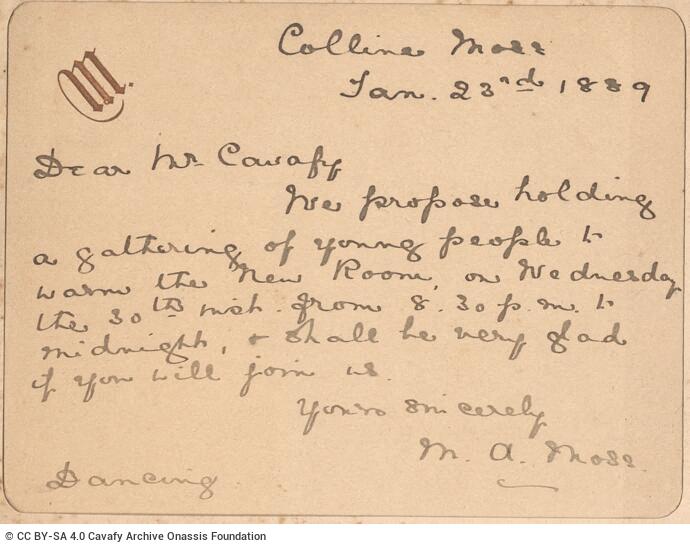 M.
Colline Moss
Jan. 23rd 1889
Dear Mr Cavafy
We propose holding
a gathering of young people to
warm the New Room, on Wednesday
the 30th inst. from 8.30 p.m. to
midnight, & shall be very glad
if you will join us.
Yours sincerely
M. A. Moss.
Dancing
© CC BY-SA 4.0 Cavafy Archive Onassis Foundation